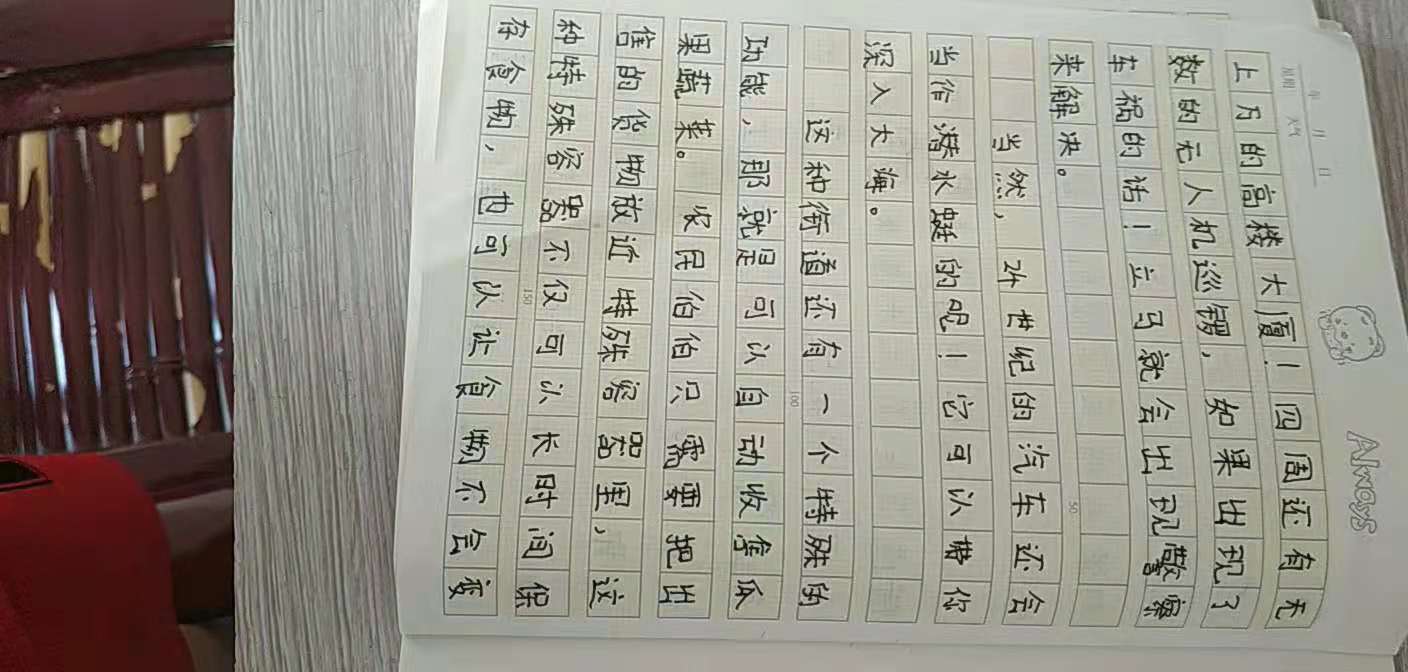 Always
年 月 日
星期 天气
上万的高楼大厦！四周还有无
数的无人机巡锣，如果出现了
车祸的话！立马就会出现警察
来解决。
50
当然，24世纪的汽车还会
当作潜水艇的呢！它可以带你
深入大海。
这种街道还有一个特殊的
100
功能，那就是可以自动收集瓜
果蔬菜。农民伯伯只需要把出
售的货物放近特殊容器里，这
种特殊容器不仅可以长时间保
150
存食物，也可以让食物不会变